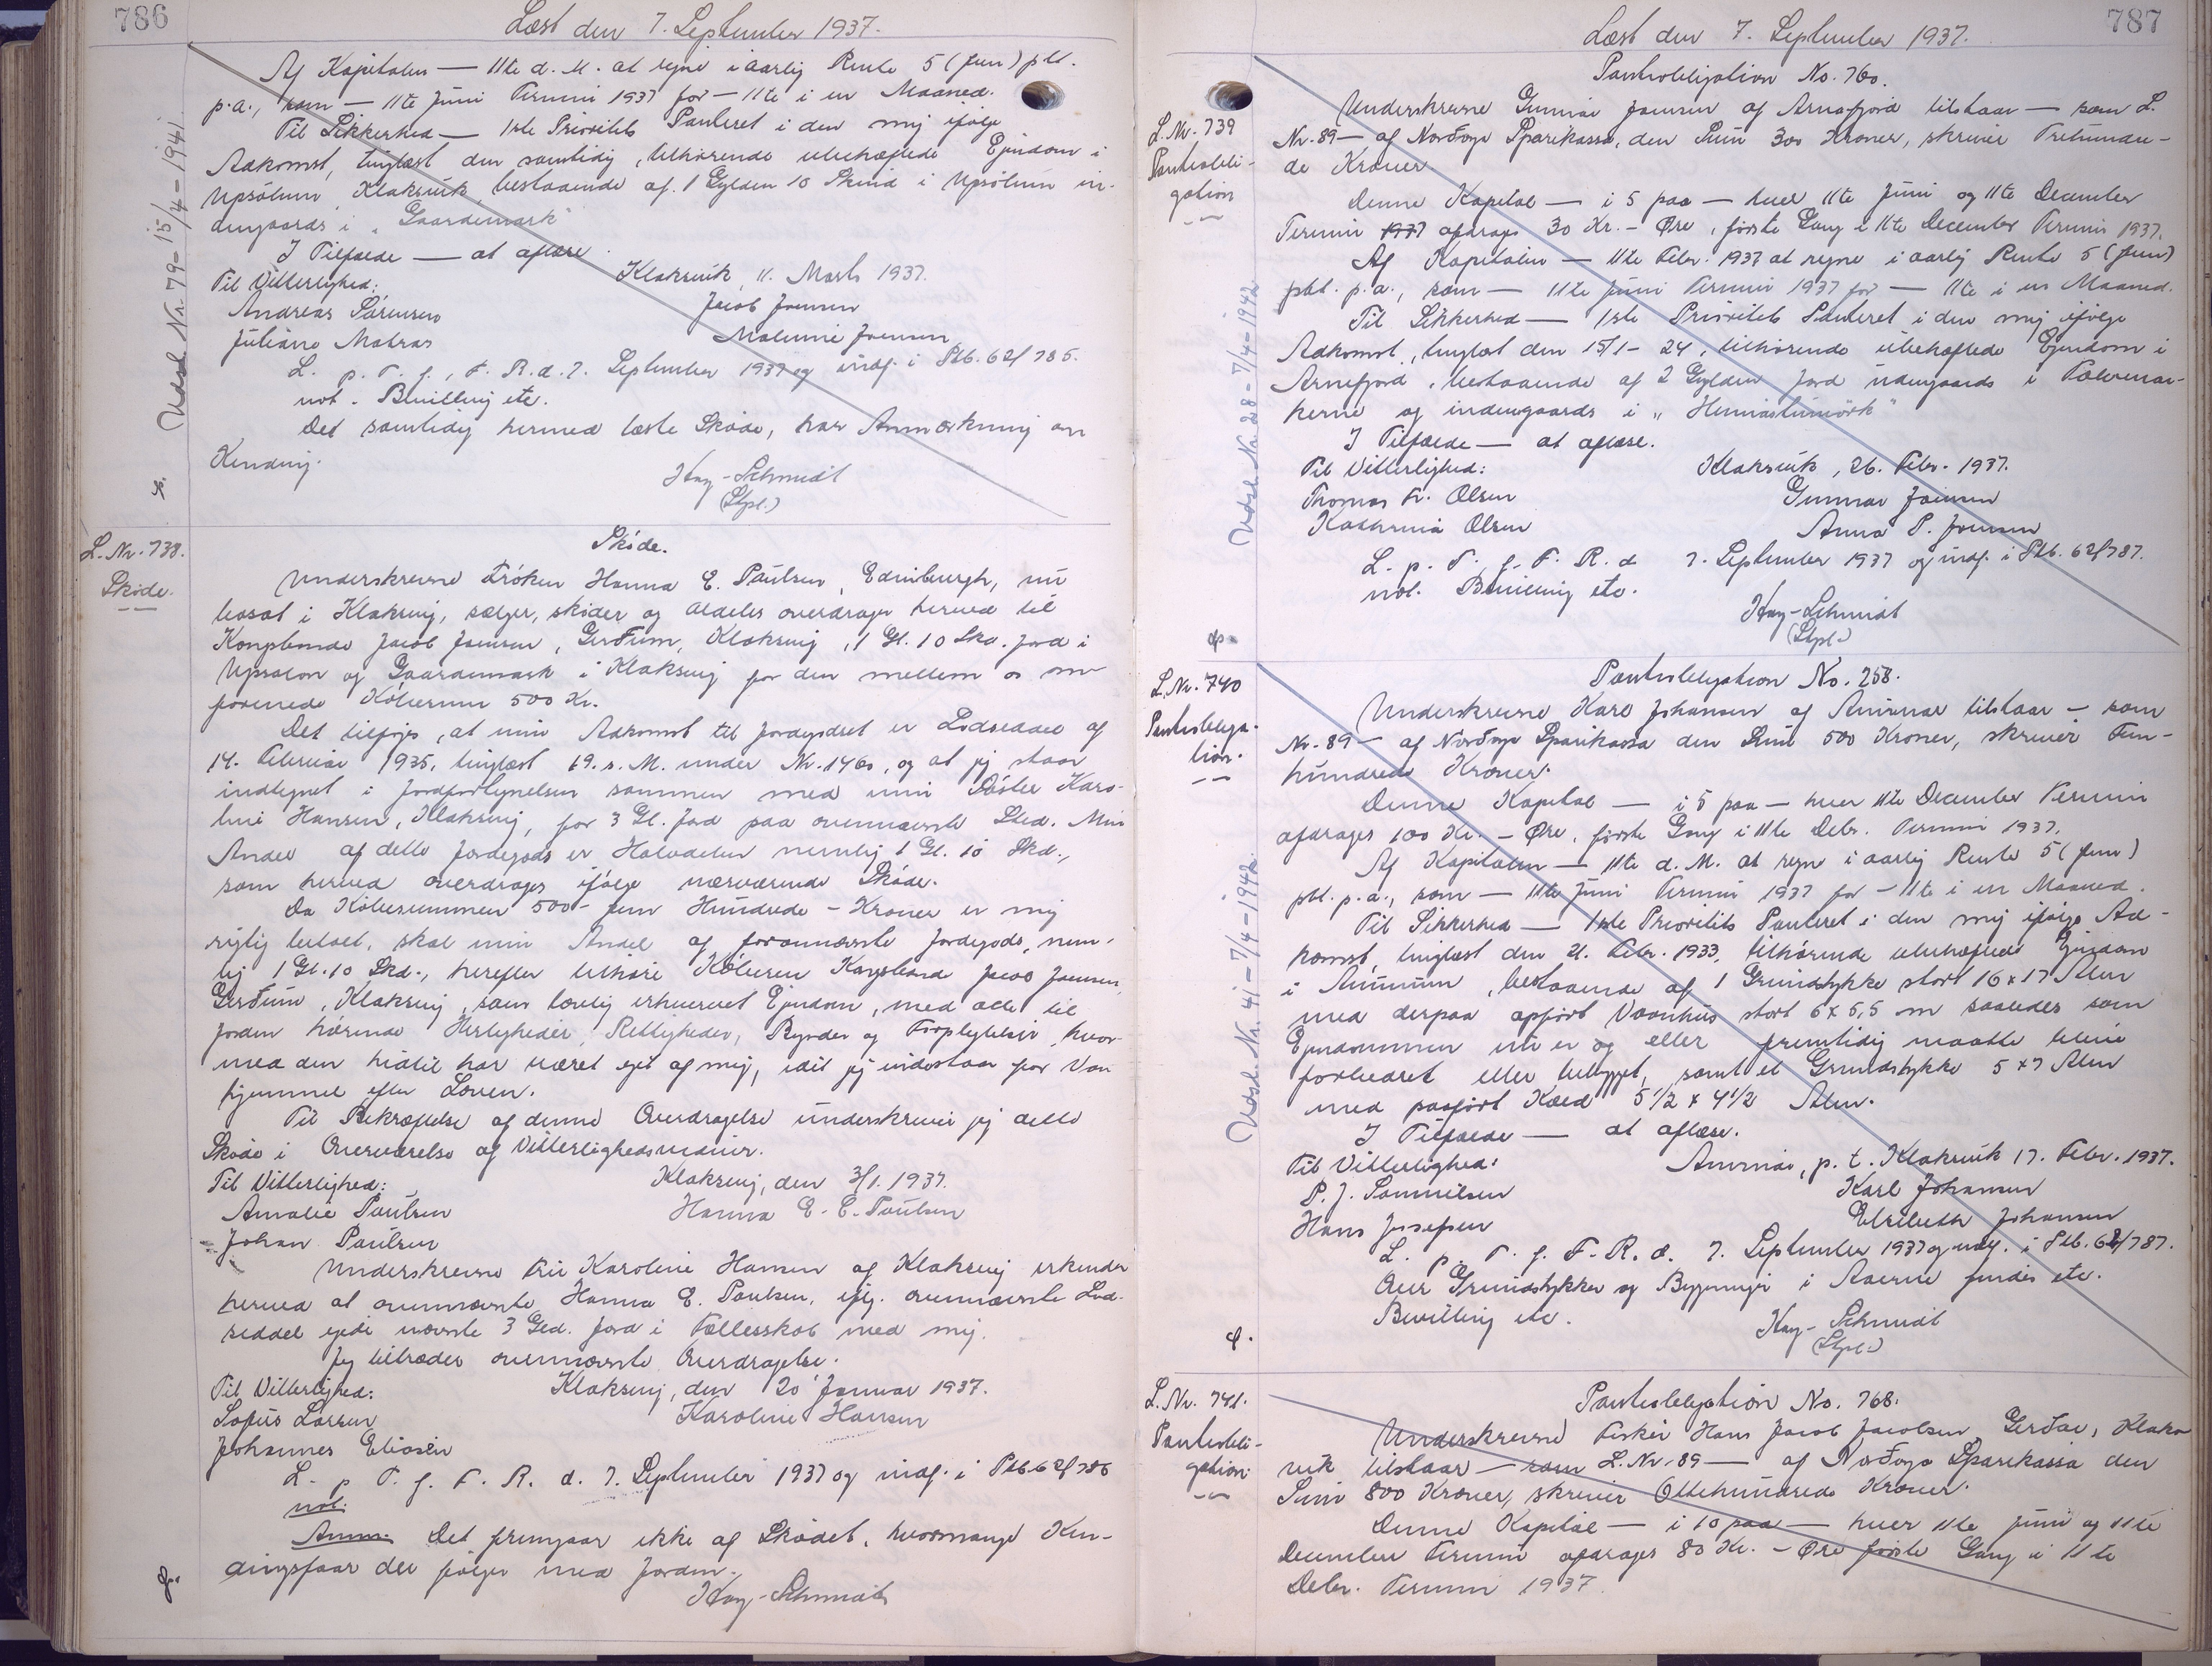 786
Læst den 7. September 1937.
Af Kapitalen — 11te d. M. at regne i aarlig Rente 5 (fem) pCt.
p.a., som — 11te Juni Termin 1937 for — 11te i en Maaned.
Til Sikkerhed — 1ste Prioritets Panteret i den mig ifølge
Adkomst, tinglæst den samtidig, tilhørende ubehæftede Ejendom i
Upsølum, Klaksvik, bestaaende af 1 Gylden 10 Skind i Upsølum in-
dengaards i "Gaardemark"
I Tilfælde — at aflæse.
Til Vitterlighed:
Klaksvik, 11. Marts 1937.
Andreas Sørensen
Jacob Joensen
Juliane Matras
Malenie Joensen
L. p. T. f. F. R. d. 7. September 1937 og indf. i Ptb. 62/785.
not. Bevilling etc.
Det samtidig hermed læste Skøde, har Anmærkning om
Kending.
Kay-Schmidt
(Stpl.)
Udsl. Nr. 79- 15/4-1941.
L. Nr. 738.
Skøde.
Skøde.
Underskrevne Frøken Hanna E. Paulsen, Edinburgh, nu
bosat i Klaksvig, sælger, skøder og aldeles overdrager herved til
Kongsbonde Jacob Joensen, Gerðum, Klaksvig, 1 Gl. 10 Skd. Jord i
Upsalon og Gaardemark i Klaksvig for den mellem os om
forenede Købesum 500 Kr.
Det tilføjes, at min Adkomst til Jordgodset er Lodseddel af
14. Februar 1935, tinglæst 19. s. M. under Nr. 1460, og at jeg staar
indtegnet i Jordfortegnelsen sammen med min Søster Karo-
line Hansen, Klaksvig, for 3 Gl. Jord paa ovennævnte Sted. Min
Andel af dette Jordegods er Halvdelen nemlig 1 Gl. 10 Skd.,
som herved overdrages ifølge nærværende Skøde.
Da Købesummen 500 - fem Hundrede - Kroner er mig
rigtig betalt, skal min Andel af forannævnte Jordegods, nem-
lig 1 Gl. 10 Skd., herefter tilhøre Køberen Kongsbonde Jacob Joensen,
Gerðum, Klaksvig, som lovlig erhvervet Ejendom, med alle til
Jorden hørende Herligheder, Rettigheder, Byrder og Forpligtelser, hvor-
med den hidtil har været ejet af mig, idet jeg indestaar for Van
hjemmel efter Loven.
Til Bekræftelse af denne Overdragelse underskriver jeg dette
Skøde i Overværelse af Vitterlighedsvidner.
Til Vitterlighed:
Klaksvig, den 3/1. 1937.
Amalie Paulsen
Hanna E. E. Paulsen
Johan Paulsen
Underskrevne Fru Karoline Hansen af Klaksvig erkender
herved at ovennævnte Hanna E. Paulsen, iflg. ovennævnte Lod-
seddel ejede nævnte 3 Gld. Jord i Fællesskab med mig.
Jeg tiltræder ovennævnte Overdragelse.
Til Vitterlighed:
Klaksvig, den 20 Januar 1937.
Sofus Larsen
Karoline Hansen
Johannes Eliasen
L. p. T. f. F. R. d. 7. September 1937 og indf. i Ptb. 62/786
not.
Anm. Det fremgaar ikke af Skødet, hvormange Ken-
dingsfaar der følger med Jorden.
Kay-Schmidt
787
Læst den 7. September 1937.
L. Nr. 739
Pantobli-
gation
Pantobligation No. 760.
Underskrevne Gunnar Joensen af Arnefjord tilstaar — som L.
Nr. 89 — af Norðoya Sparikassa, den Sum 300 Kroner, skriver Trehundre-
de Kroner.
Denne Kapital — i 5 paa — hver 11te Juni og 11te December
Termin 1937 afdrages 30 Kr. - Øre, første Gang i 11te December Termin 1937.
Af Kapitalen — 11te Febr. 1937 at regne i aarlig Rente 5 (fem)
pCt. p.a., som — 11te Juni Termin 1937 for — 11te i en Maaned.
Til Sikkerhed — 1ste Prioritets Panteret i den mig ifølge
Adkomst, tinglæst den 15/1-24, tilhørende ubehæftede Ejendom i
Arnefjord, bestaaende af 2 Gylden Jord udengaards i
kerne og indengaards i
I Tilfælde — at aflæse.
Til Vitterlighed:
Klaksvik, 26. Febr. 1937.
Thomas Fr. Olsen
Gunnar Joensen
Kathrina Olsen
Anna P. Joensen
L. p. T. f. F. R. d 7. September 1937 og indf. i Ptb. 62/787.
not. Bevilling etc.
Kay-Schmidt
(Stpl.)
Udsl. Nr. 28-7/4-1942
L. Nr. 740
Pantobliga-
tion.
Pantobligation No. 258.
Underskrevne Karl Johansen af Anirnar tilstaar — som
Nr. 89 — af Norðoya Sparikassa den Sum 500 Kroner, skriver Fem-
hundrede Kroner.
Denne Kapital — i 5 paa — hver 11te December Termin
afdrages 100 Kr. - Øre, første Gang i 11te Debr. Termin 1937.
Af Kapitalen — 11te d. M. at regne i aarlig Rente 5 (fem)
pCt. p.a., som — 11te Juni Termin 1937 for — 11te i en Maaned.
Til Sikkerhed — 1ste Prioritets Panteret i den mig ifølge Ad-
komst, tinglæst den 21. Febr. 1933, tilhørende ubehæftede Ejendom
i Anirnum, bestaaende af 1 Grundstykke stort 16 x 17 Alen
med derpaa opført Vaanhus stort 6 x 5,5 m saaledes som
Ejendommen nu er og eller fremtidig maatte blive
forbedret eller bebygget, samt et Grundstykke 5 x 7 Alen
med paaført Kæld 5 1/2 x 4 1/2 Alen.
I Tilfælde — at aflæse.
Til Vitterlighed:
Anirnar, p. t. Klaksvik 17. Febr. 1937.
P. J. Samuelsen
Karl Johansen
Hans Josefsen
Elsebeth Johansen
L. p. T. f. F. R. d. 7. September 1937 og indf. i Ptb. 62/787.
Over Grundstykker og Bygninger i Aaerne findes etc.
Bevilling etc.
Kay-Schmidt
(Stpl.)
Udsl. Nr. 41-7/4-1942.
L. Nr. 741.
Pantobli-
gation
Pantobligation No. 768.
Underskrevne Fisker Hans Jacob Jacobsen, Gerðar, Klaks
vik tilstaar — som L. Nr. 89 — af Norðoya Sparikassa den
Sum 800 Kroner, skriver Ottehundrede Kroner.
Denne Kapital — i 10 paa — hver 11te Juni og 11te
December Termin afdrages 80 Kr. - Øre første Gang i 11te
Debr. Termin 1937.